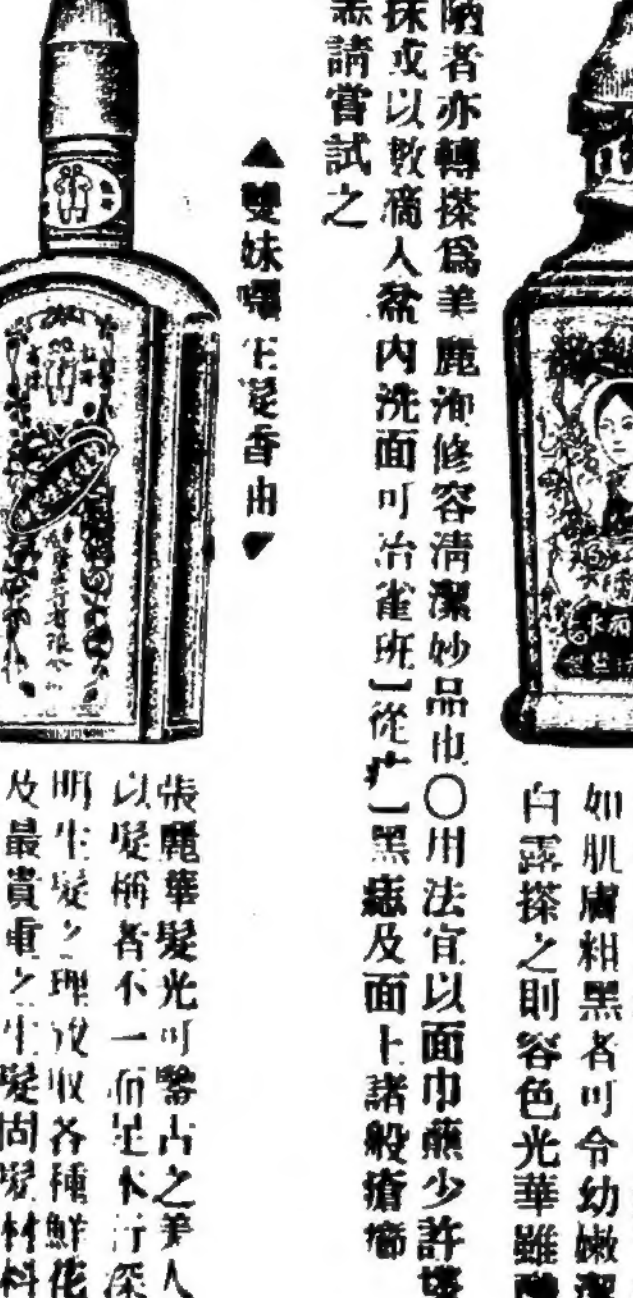 如肌膚粗黑者可令幼嫩潔
白露搽之則容色光華雖醜
陋者亦轉搽爲美麗洵修容清潔妙品也〇用法宜以面巾蘸少許塗
抹或以數滴入盆內洗面可冶雀斑［從疒］黑痣及面上諸般瘡
請嘗試之
▲雙妹嚜生髮香油▼
張麗華髮光可鑒古之美人
以髮稱者不一而足本行深
明生髮之理故收各種鮮花
及最貴重之生髮固髮材料